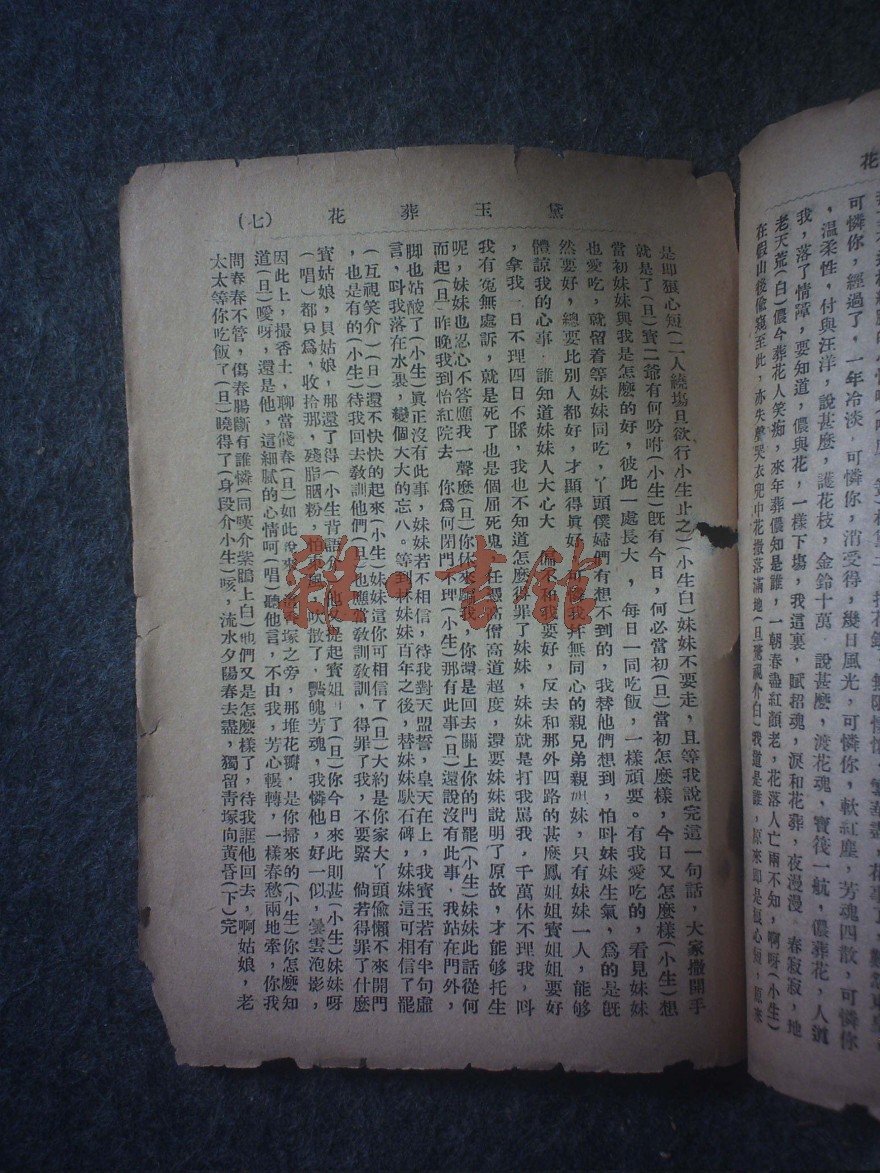 花
可憐你，經過了，一年冷淡，可憐你，消受得，幾日風光，可憐你，軟紅塵，芳魂四散，可憐你
，溫柔性，付與汪洋，說甚麼，護花枝，金鈴十萬，說甚麼，渡花魂，寶筏一航，儂葬花，人道
我，落了情障，要知道，儂與花，一樣下塲，我這裏，賦招魂，淚和花葬，夜漫漫，春寂寂，地
老天荒(白)儂今葬花人笑痴，來年葬儂知是誰，一朝春盡紅顏老，花落人亡兩不知，啊呀(小生)
在假山後偷窺至此，亦失聲哭衣兜中花撒落滿地(旦驚視介白)我道是誰，原來即是狠心短，
黛玉葬花
(七)
是即狠心短(二人繞塲旦欲行小生止之)(小生白)妹妹不要走，且等我說完這一句話，大家撒開手
就是了(旦)寶二爺有何吩咐(小生)旣有今日，何必當初(旦)當初怎麼樣，今日又怎麼樣(小生)想
當初妹妹與我是怎麼的好，彼此一處長大，每日一同吃飯，一樣頑耍。有我愛吃的，看見妹妹
也愛吃，就留着等妹妹同吃，丫頭僕婦們有想不到的，我替他們想到，怕呌妹妹生氣，爲的是旣
然要好，總要比別人都好，才顯得眞好，可憐我幷無同心的親兄弟親姐妹，只有妹妹一人，能够
體諒我的心事，誰知道妹妹人大心大，倒不和我要好，反去和那外四路的甚麼鳳姐姐寶姐姐要好
，拿我三日不理四日不睬，我也不知道怎麼得罪了妹妹，妹妹就是打我罵我，千萬休不理我，呌
我有寃無處訴，就是死了也是個屈死鬼，任憑高僧高道超度，還要妹妹說明了原故，才能够托生
呢，妹妹也忍心不答應我一聲麼(旦)你休來騙我，你還是回去關上你的門罷(小生)妹妹此話從何
而起(旦)昨晚我到怡紅院去，你爲何閉門不理(小生)那有此事(旦)還說沒有此事，我站在門外，
脚也站酸了(小生)眞正沒有此事，妹妹若不相信，待我對天盟誓，皇天在上，我寶玉若有半句虛
言，呌我落在水裏，變個大大的忘八。等到林妹妹百年之後，替妹妹馱石碑，妹妹這可相信了罷
(互視笑介)(旦)還不快快的起來(小生)妹妹這你可相信了(旦)大約是你家大丫頭偷懶不來開門
，也是有的(小生)待我回去敎訓他們(旦)也應當敎訓敎訓，得罪了我，不要緊，倘若得罪了什麼
寶姑娘，貝姑娘，那還了得(小生背語介)他又提起寶姐姐了(旦)你今日來此則甚(小生)妹妹呀
(唱)都只爲，收拾那，殘脂膩粉，怕東風，吹散了，豔魄芳魂，我憐他，好一似，曇雲泡影，
因此上，撮香土，聊當餞春(旦)如此說來，落香塚之旁，那堆花瓣，是你掃來的(小生)你怎麼知
道(旦)噯呀，還是他，這細膩的心情呵(唱)聽他言，不由我，芳心輾轉，一樣春愁兩地牽，你我
問春春不管，傷春腸斷有誰憐(同嘆介紫鵑上白)他們又是怎麼樣了，待我誆他回去，啊姑娘，老
太太等你吃飯了(旦)曉得了(身段介小生)咳，流水夕陽春去盡，獨留靑塚向黃昏(下)完
雜書館